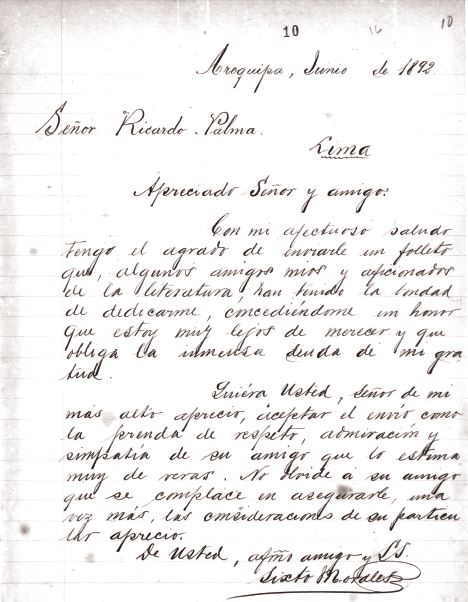 10 16 10
Arequipa, Junio de 1892
Señor Ricardo Palma.
Lima
Apreciado Señor y amigo:
Con mi afectuoso saludo
tengo el agrado de enviarle un folleto
que, algunos amigos mios y aficionados
de la literatura, han tenido la bondad
de dedicarme, concediéndome un honor
que estoy muy lejos de merecer y que
obliga la inmensa deuda de mi gra
titud.
Quiéra Usted, señor de mi
más alto aprecio, aceptar el envio como
la prenda de respeto, admiración y
simpatia de su amigo que lo estima
muy de veras. No olvide á su amigo
que se complace en asegurarle, una
vez más, las consideraciones de su particu
lar aprecio.
De Usted, afmo amigo y S.S.
Sixto Morales